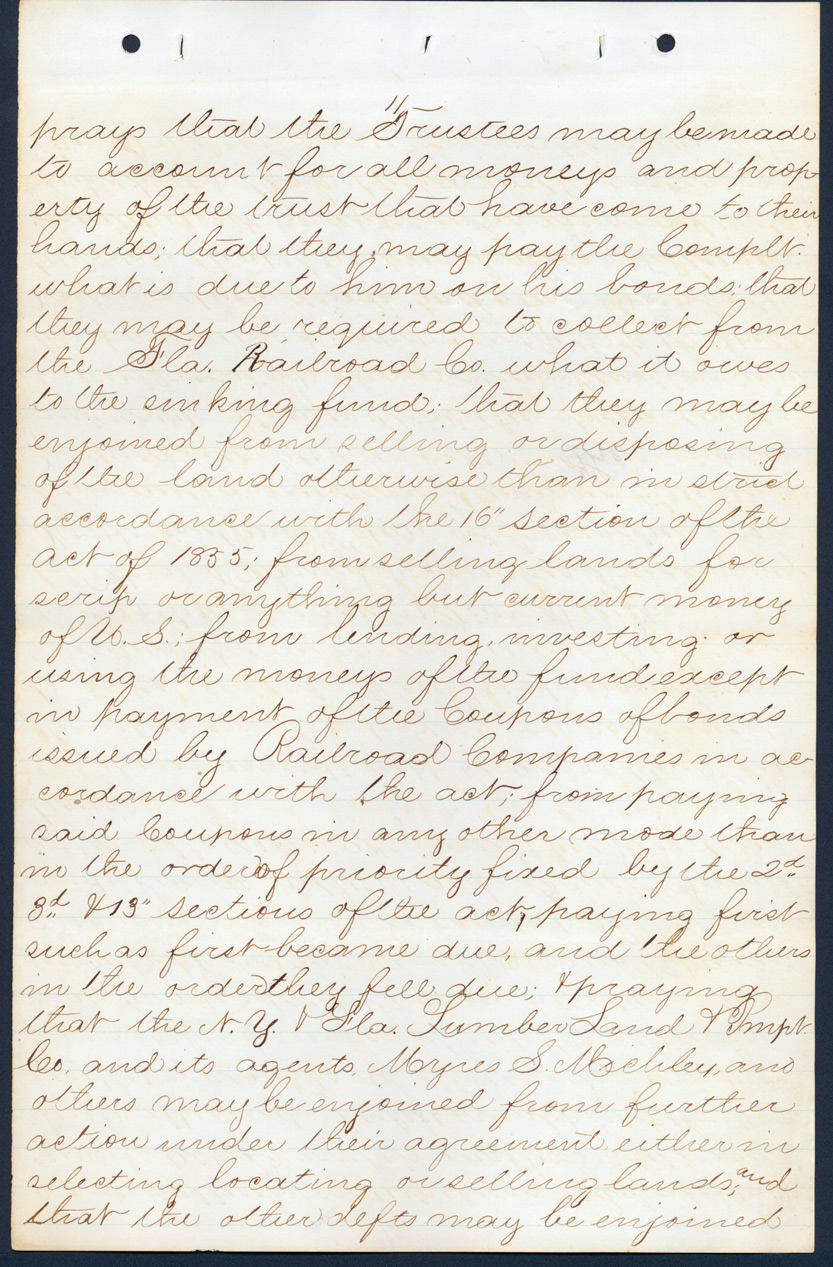 11
prays that the Trustees may be made
to account for all moneys and prop-
erty of the trust that have come to their
hands; that they may pay the Complt.
what is due to him on his bonds; that
they may be required to collect from
the Fla. Railroad Co. what it owes
to the sinking fund; that they may be
enjoined from selling or disposing
of the land otherwise than in strict
accordance with the 16" section of the
act of 1855; from selling lands for
scrip or anything but current money
of U.S.; from lending, investing or
using the moneys of the fund except
in payment of the Coupons of bonds
issued by Railroad Companies in ac-
cordance with the act; from paying
said Coupons in any other mode than
in the order of priority fixed by the 2d
3d & 13" sections of the act, paying first
such as first became due, and the others
in the order they fell due; & praying
that the N.Y. & Fla. Lumber Land & Impt.
Co. and its agents, S. and
others may be enjoined from further
action under their agreement either in
selecting locating or selling lands; and
that the other defts may be enjoined